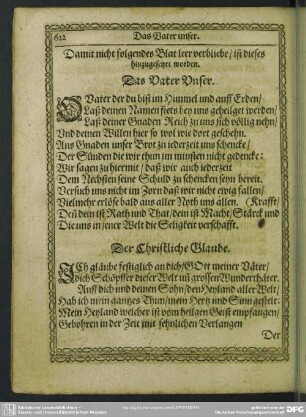 622 Das Vater unser.
Damit nicht folgendes Blat leer verbliebe/ ist dieses
hinzugesetzet worden.
Das Vater Unser.
O Vater der du bist im Himmel und auff Erden/
Laß deinen Namen stets bey uns geheilget werden/
Laß deiner Gnaden Reich zu uns sich völlig nehn/
Und deinen Willen hier so wol wie dort geschehn.
Aus Gnaden unser Brot zu jederzeit uns schencke/
Der Sünden die wir thun im minsten nicht gedencke:
Wir sagen zu hiermit/ daß wir auch jederzeit
Dem Nechsten seine Schuld zu schencken seyn bereit.
Versuch uns nicht im Zorn daß wir nicht ewig fallen/
Vielmehr erlöse bald aus aller Noth uns allen. (Krafft/
Deñ dein ist Rath und That/dein ist Macht/ Stärck und
Die uns in jener Welt die Seligkeit verschafft.
Der Christliche Glaube.
ICh gläube festiglich an dich GOtt meiner Väter/
Dich Schöpffer dieser Welt uñ grossen Wunderthäter.
Auff dich und deinen Sohn/ den Heyland aller Welt/
Hab ich mein gantzes Thun/ mein Hertz und Sinn gestelt:
Mein Heyland welcher ist vom heilgen Geist empfangen/
Gebohren in der Zeit mit sehnlichen Verlangen
Der